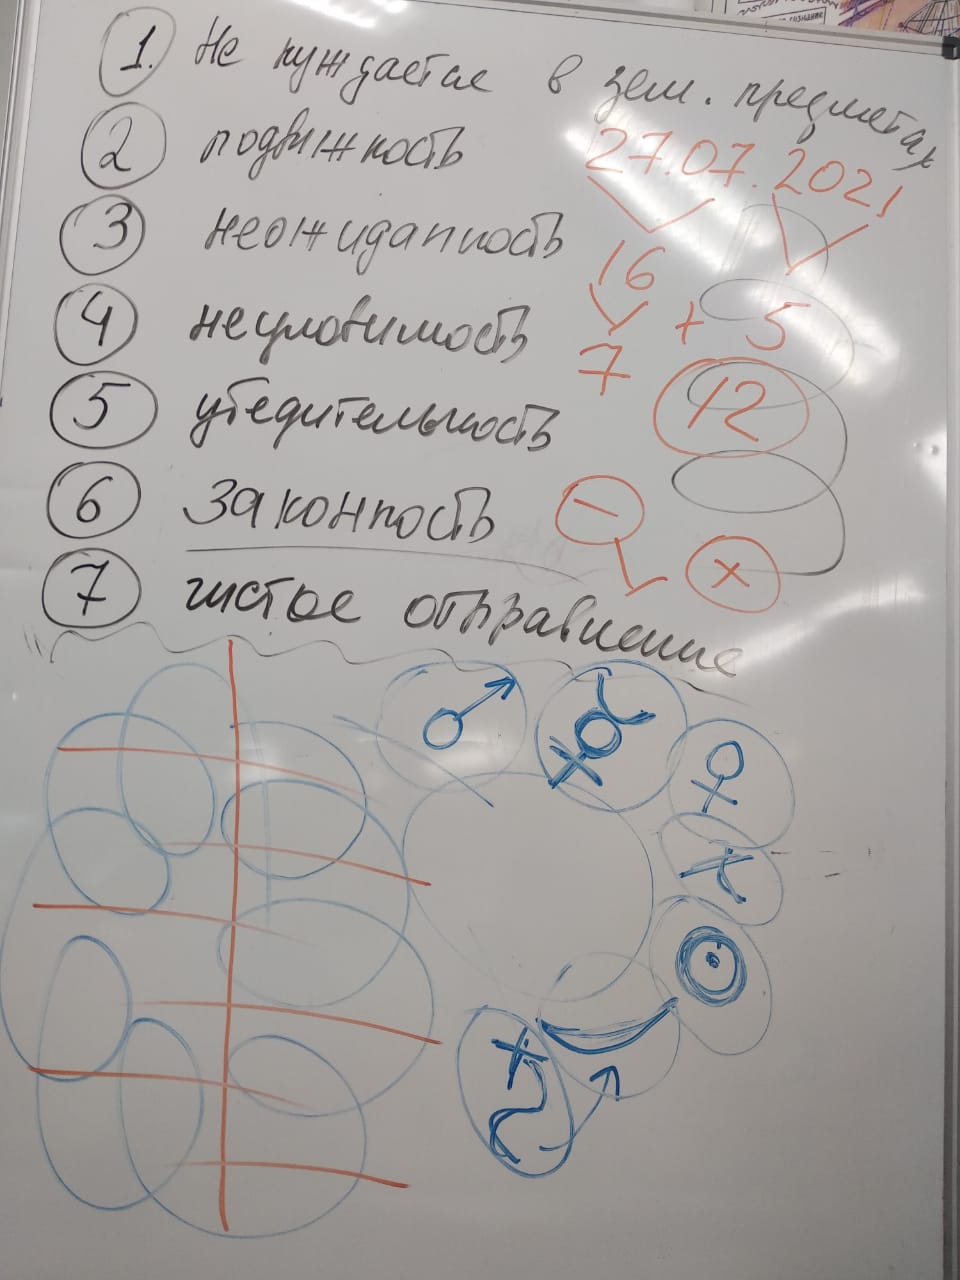 1. Не нуждается в зем. предметах
2 подвижность
27.07.2021
3 неожиданность
16 + 5
4 неуловимость
7 12
5 убедительность
6 законность
− ×
7 чистое отправление